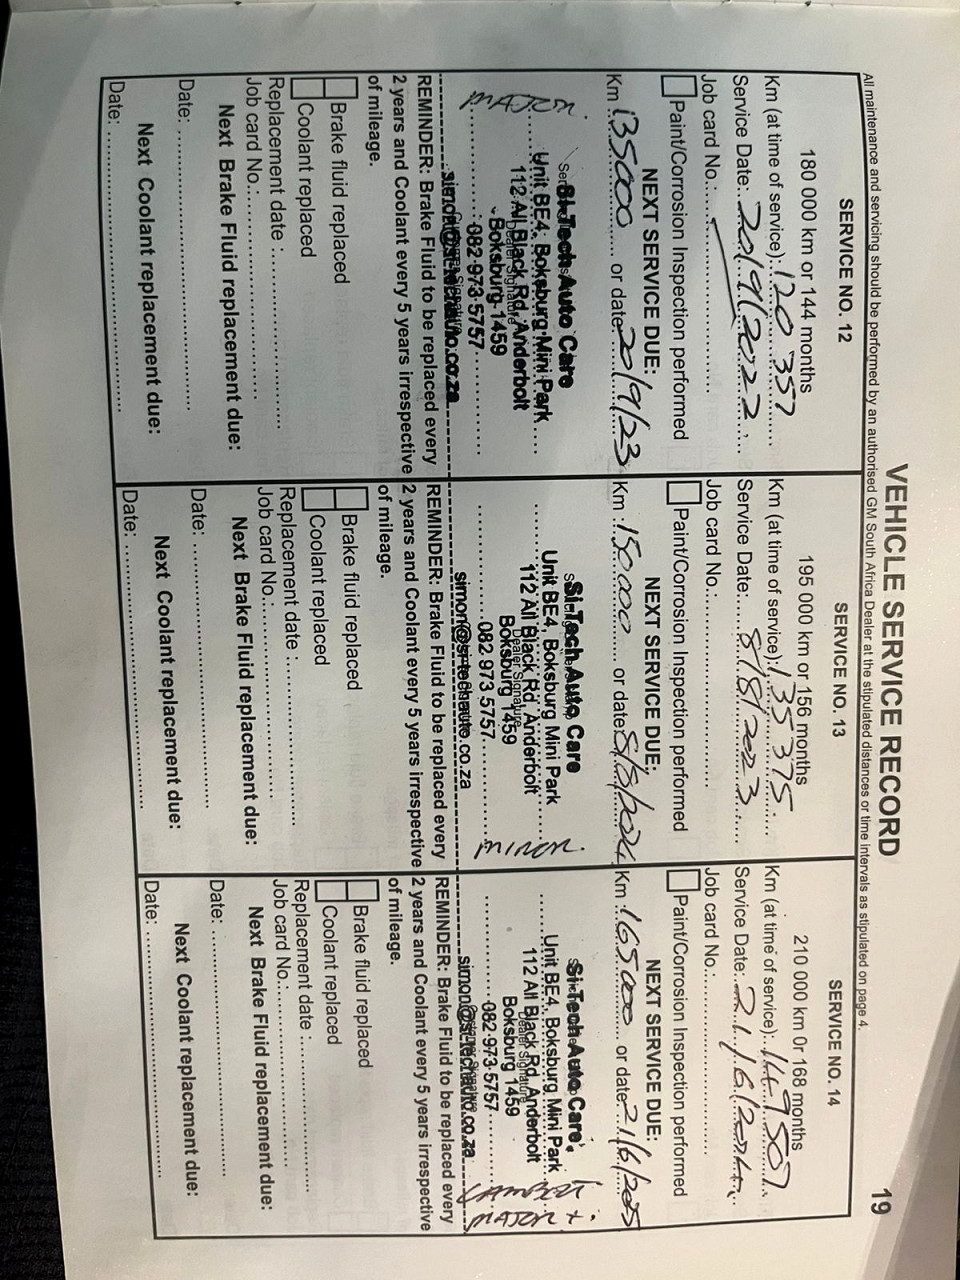 VEHICLE SERVICE RECORD
19
All maintenance and servicing should be performed by an authorised GM South Africa Dealer at the stipulated distances or time intervals as stipulated on page 4.
SERVICE NO. 12
180 000 km or 144 months
Km (at time of service): 120 357
Service Date: 20/9/2022
Job card No.:
Paint/Corrosion Inspection performed
NEXT SERVICE DUE:
Km 135000 or date 20/9/23
Si-Tech Auto Care
Unit BE4, Boksburg Mini Park
112 All Black Rd, Anderbolt
Dealer Signature
Boksburg 1459
082 973 5757
simon@si-techauto.co.za
MAJOR.
REMINDER: Brake Fluid to be replaced every
2 years and Coolant every 5 years irrespective
of mileage.
Brake fluid replaced
Coolant replaced
Replacement date :
Job card No.:
Next Brake Fluid replacement due:
Date:
Next Coolant replacement due:
Date:
SERVICE NO. 13
195 000 km or 156 months
Km (at time of service): 135 375
Service Date: 8/8/2023
Job card No.:
Paint/Corrosion Inspection performed
NEXT SERVICE DUE:
Km 150000 or date 8/8/2024
Si-Tech Auto Care
Unit BE4, Boksburg Mini Park
112 All Black Rd, Anderbolt
Dealer Signature
Boksburg 1459
082 973 5757
simon@si-techauto.co.za
MINOR.
REMINDER: Brake Fluid to be replaced every
2 years and Coolant every 5 years irrespective
of mileage.
Brake fluid replaced
Coolant replaced
Replacement date :
Job card No.:
Next Brake Fluid replacement due:
Date:
Next Coolant replacement due:
Date:
SERVICE NO. 14
210 000 km 0r 168 months
Km (at time of service):
Service Date: 21/6/2024
Job card No.:
Paint/Corrosion Inspection performed
NEXT SERVICE DUE:
Km 165000 or date 21/6/2025
Si-Tech Auto Care
Unit BE4, Boksburg Mini Park
112 All Black Rd, Anderbolt
Dealer Signature
Boksburg 1459
082 973 5757
simon@si-techauto.co.za
CAMBELT
MAJOR +.
REMINDER: Brake Fluid to be replaced every
2 years and Coolant every 5 years irrespective
of mileage.
Brake fluid replaced
Coolant replaced
Replacement date :
Job card No.:
Next Brake Fluid replacement due:
Date:
Next Coolant replacement due:
Date: